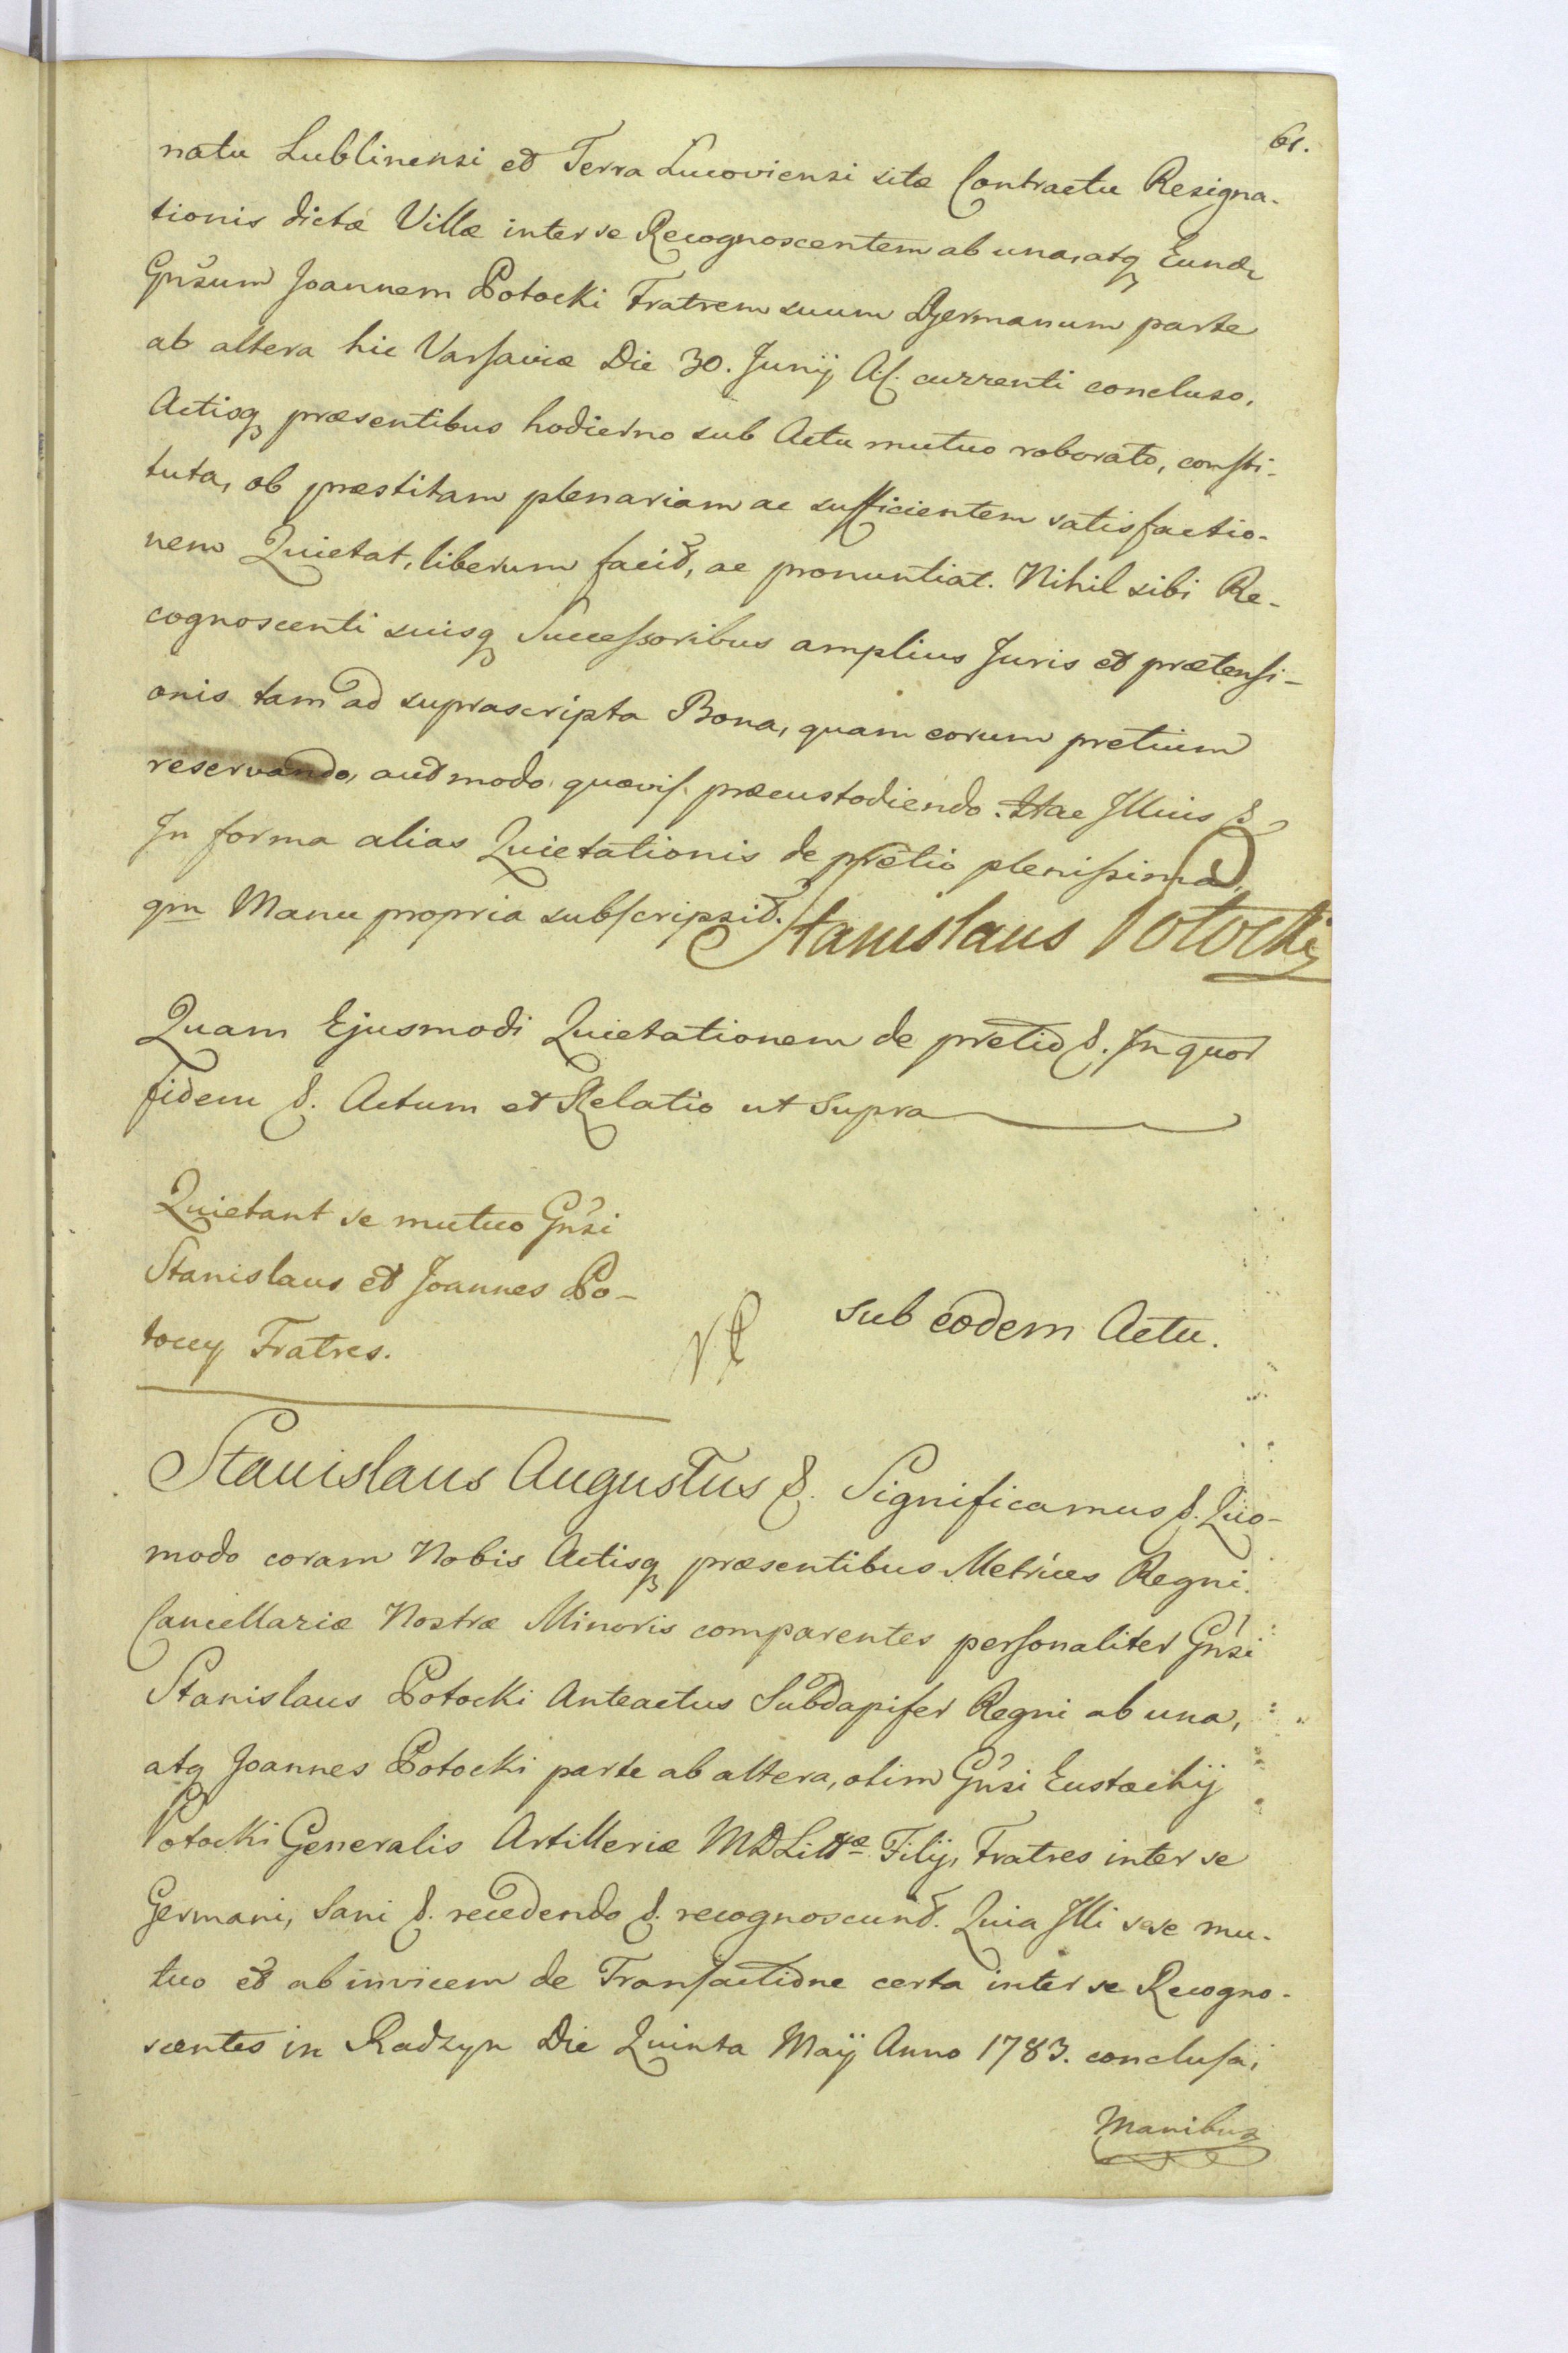 61.
natu Lublinensi et Terra Lucoviensi sitæ Contractu Resigna-
tionis dictæ Villæ inter se Recognoscentem ab una, atq Eund
Gnsum Joannem Potocki Fratrem suum Germanum parte
ab altera hic Varsaviæ Die 30. Junij A. currenti concluso,
Actisq præsentibus hodierno sub Actu mutuo roborato, consti-
tuta, ob præstitam plenariam ac sufficientem satisfactio-
nem Quietat, liberum facit, ac pronuntiat. Nihil sibi Re-
cognoscenti suisq Successoribus amplius Juris et prætensi-
onis tam ad suprascripta Bona, quam eorum pretium
reservando, aut modo quovis præcustodiendo. Hac Illius &
In forma alias Quietationis de pretio plenissima,
qm Manu propria subscripsit. Stanislaus Potocki
Quam Ejusmodi Quietationem de pretio &. In quor
fidem &. Actum et Relatio ut Supra
Quietant se mutuo Gnsi
Stanislaus et Joannes Po-
toccy Fratres.
sub eodem Actu.
Stanislaus Augustus &. Significamus &. Quo-
modo coram Nobis Actisq præsentibus Metrices Regni
Cancellariæ Nostræ Minoris comparentes personaliter Gnsi
Stanislaus Potocki Anteactus Subdapifer Regni ab una,
atq Joannes Potocki parte ab altera, olim Gnsi Eustachij
Potocki Generalis Artilleriæ MDLittæ Filij, Fratres inter se
Germani, Sani &. recedendo &. recognoscunt. Quia Illi sese mu-
tuo et ab invicem de Transactione certa inter se Recogno-
scentes in Radzyn Die Quinta Maij Anno 1783. conclusa,
Manibus